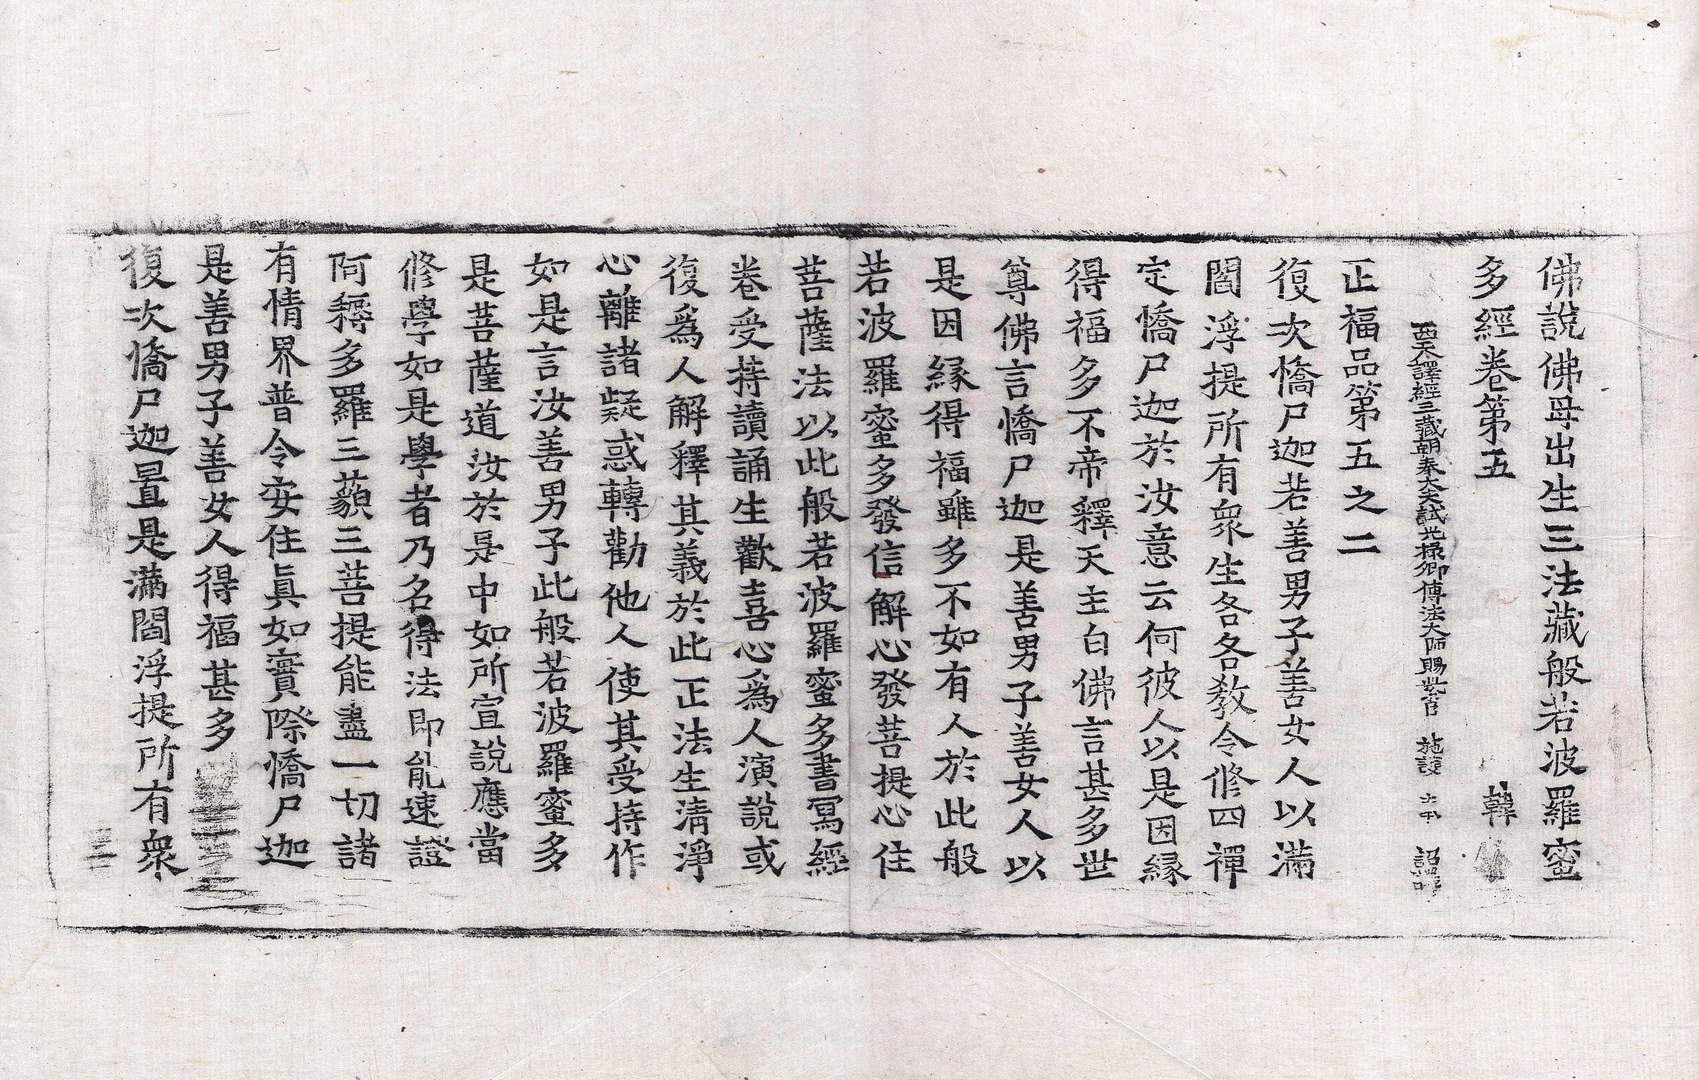 佛說佛母出生三法藏般若波羅蜜
多經卷第五 韓
西天譯經三藏朝奉大夫試光祿卿傳法大師賜紫臣 施護 奉 詔譯
正福品第五之二
復次憍尸迦若善男子善女人以滿
閻浮提所有衆生各各教令修四禪
定憍尸迦於汝意云何彼人以是因緣
得福多不帝釋天主白佛言甚多世
尊佛言憍尸迦是善男子善女人以
是因緣得福雖多不如有人於此般
若波羅蜜多發信解心發菩提心住
菩薩法以此般若波羅蜜多書寫經
卷受持讀誦生歡喜心爲人演說或
復爲人解釋其義於此正法生清淨
心離諸疑惑轉勸他人使其受持作
如是言汝善男子此般若波羅蜜多
是菩薩道汝於是中如所宣說應當
修學如是學者乃名得法即能速證
阿耨多羅三藐三菩提能盡一切諸
有情界普令安住眞如實際憍尸迦
是善男子善女人得福甚多
復次憍尸迦置是滿閻浮提所有衆